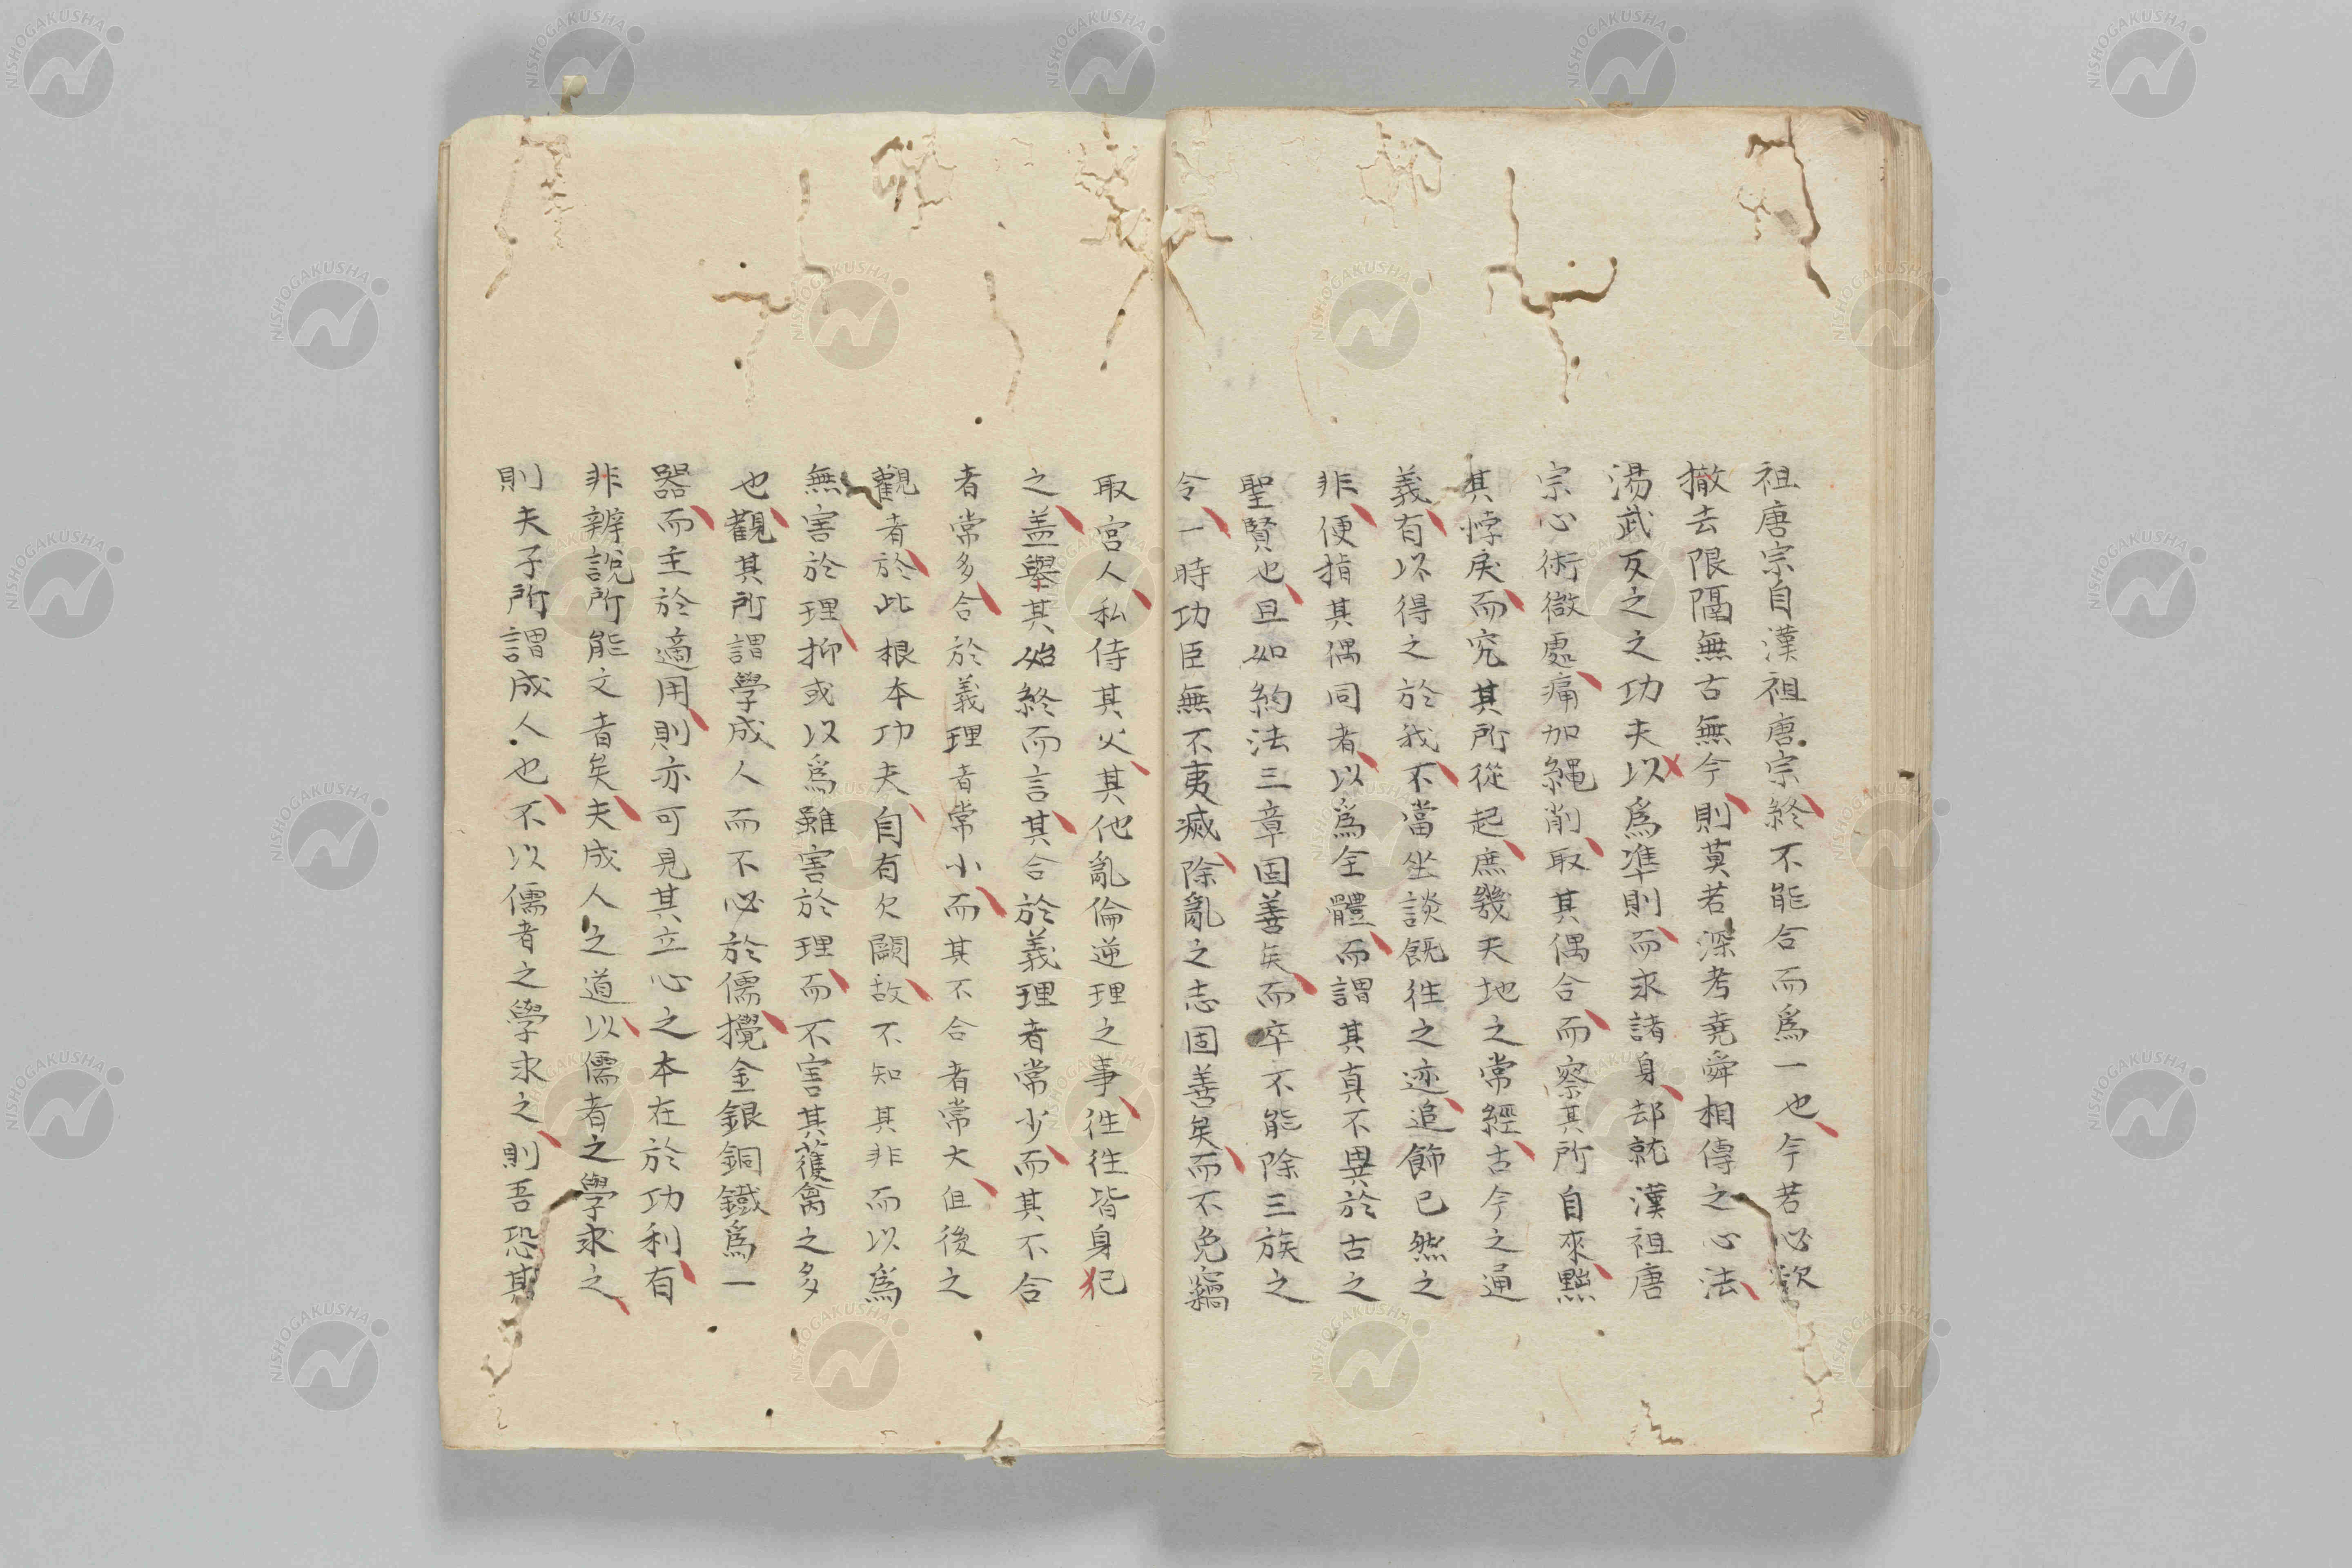 祖唐宗自漢祖唐宗終不能合而爲一也今若必欲
撤去限隔無古無今則莫若深考堯舜相傳之心法
湯武反之之功夫以爲準則而求諸身却就漢祖唐
宗心術微處痛加繩削取其偶合而察其所自來黜
其悖戾而究其所從起庶幾天地之常經古今之通
義有以得之於我不當坐談既徃之迹追飾已然之
非便指其偶同者以爲全體而謂其真不異於古之
聖賢也且如約法三章固善矣而卒不能除三族之
令一時功臣無不夷滅除亂之志固善矣而不免竊
取宮人私侍其父其他亂倫逆理之事徃徃皆身犯
之盖舉其始終而言其合於義理者常少而其不合
者常多合於義理者常小而其不合者常大但後之
觀者於此根本功夫自有欠闕故不知其非而以爲
無害於理抑或以爲雖害於理而不害其獲禽之多
也觀其所謂學成人而不必於儒攪金銀銅鐵爲一
器而主於適用則亦可見其立心之本在於功利有
非辨說所能文者矣夫成人之道以儒者之學求之
則夫子所謂成人也不以儒者之學求之則吾恐其
NISHOGAKUSHA